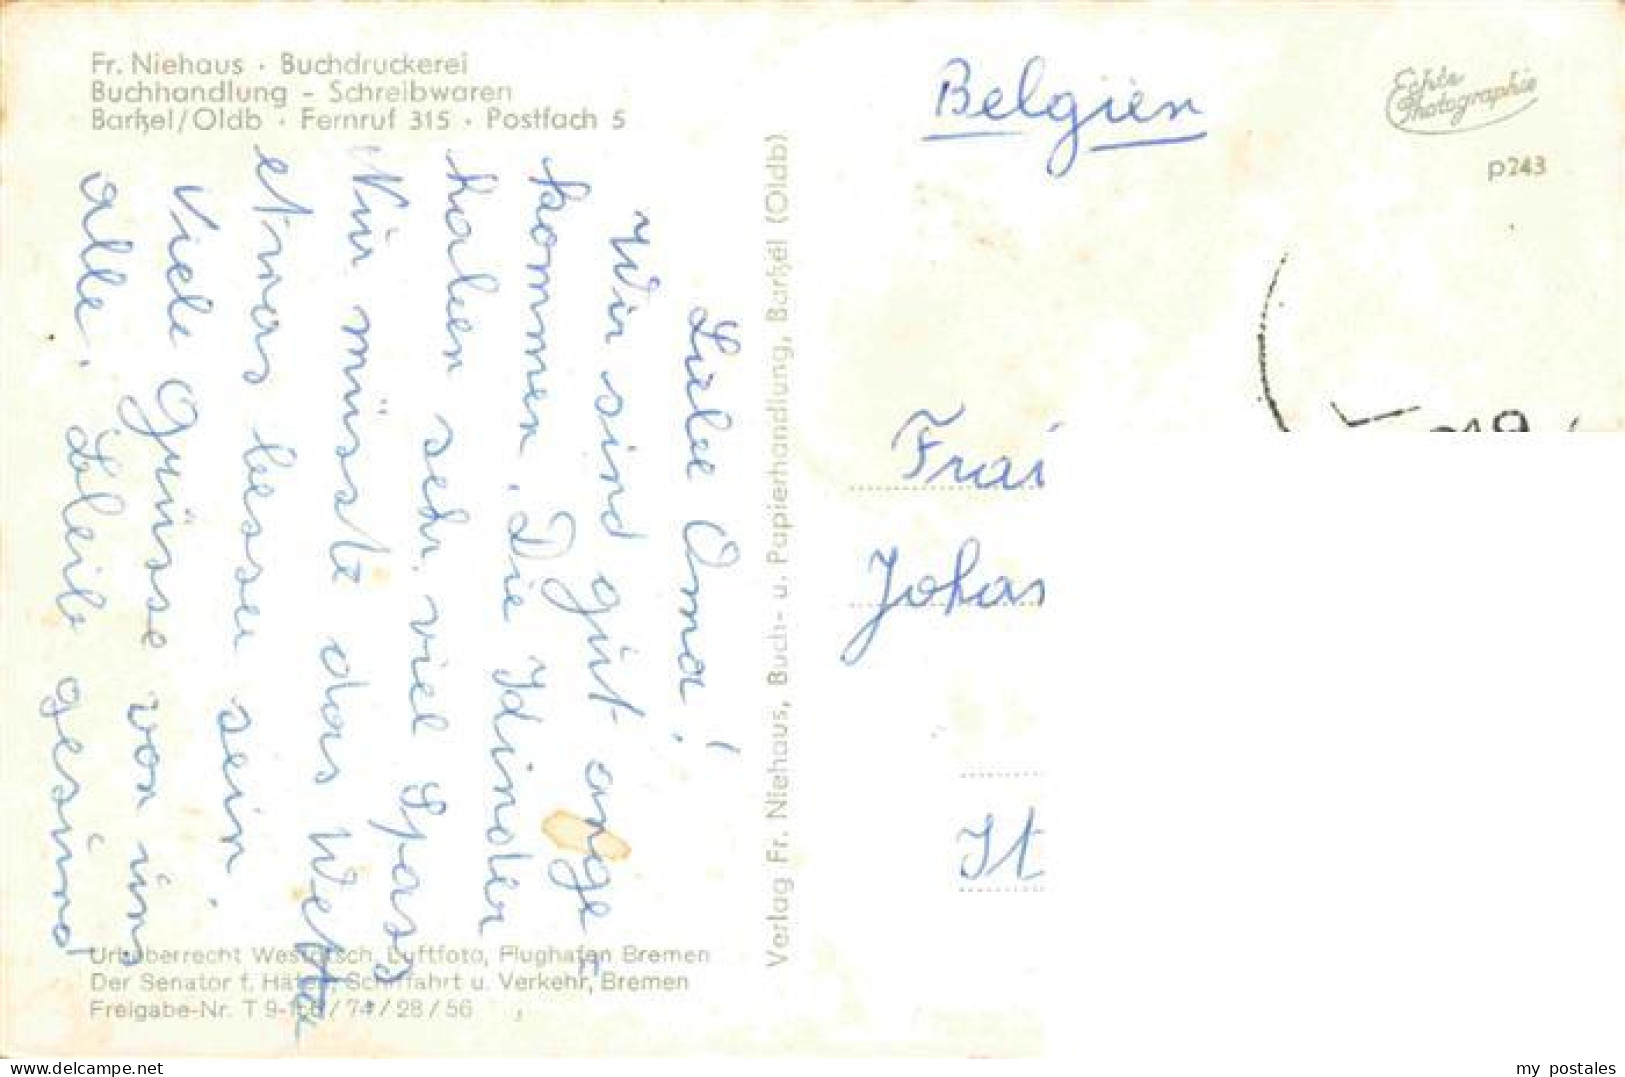 Fr. Niehaus · Buchdruckerei
Buchhandlung - Schreibwaren
Barßel/Oldb · Fernruf 315 · Postfach 5
Liebe Oma!
Wir sind gut ange=
kommen. Die Kinder
haben sehr viel Spass
Nur müsste das Wetter
etwas besser sein.
Viele Grüsse von uns
alle. Bleib gesund
Urheberrecht Westdtsch. Luftfoto, Flughafen Bremen
Der Senator f. Häfen, Schiffahrt u. Verkehr, Bremen
Freigabe-Nr. T 9-158/74/28/56
Verlag Fr. Niehaus, Buch- u. Papierhandlung, Barßel (Oldb)
Belgien
Echte
Photographie
p243
Frau
Johas
St
delcampe.net
my_postales